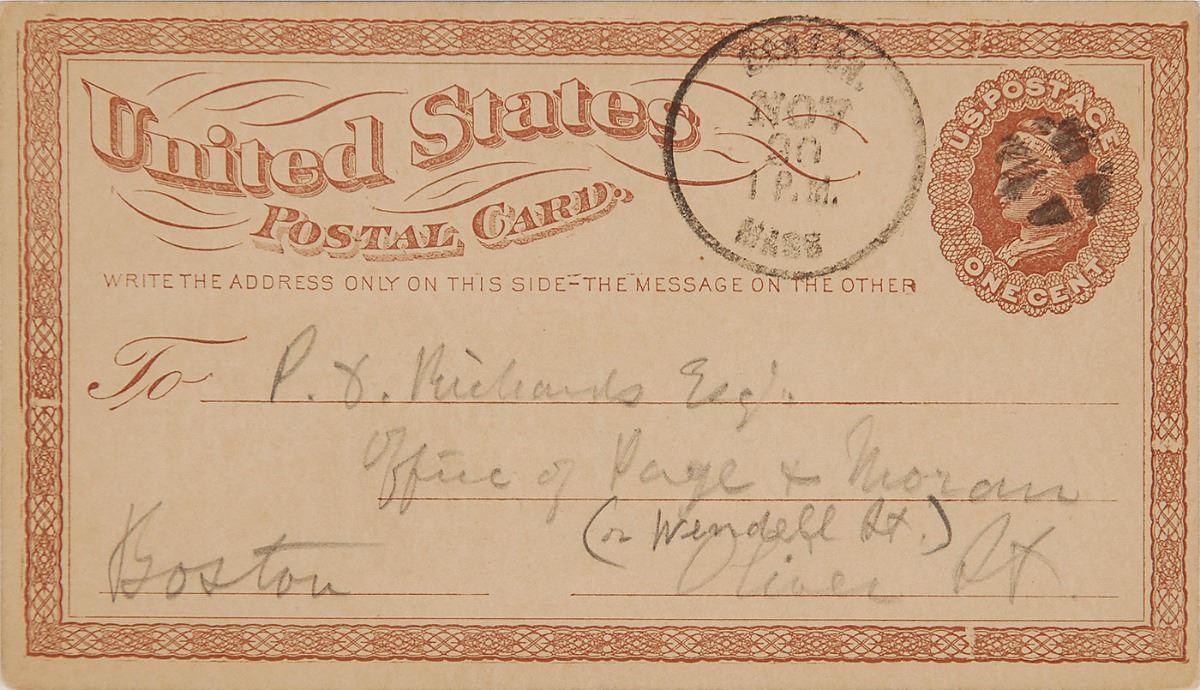 United States
POSTAL CARD.
WRITE THE ADDRESS ONLY ON THIS SIDE–THE MESSAGE ON THE OTHER
NOV
20
1 P.M.
MASS
U.S. POSTAGE
ONE CENT
To P. D. Richards Esq.
Office of Page & Moran
(or Wendell St.)
Boston Oliver St.